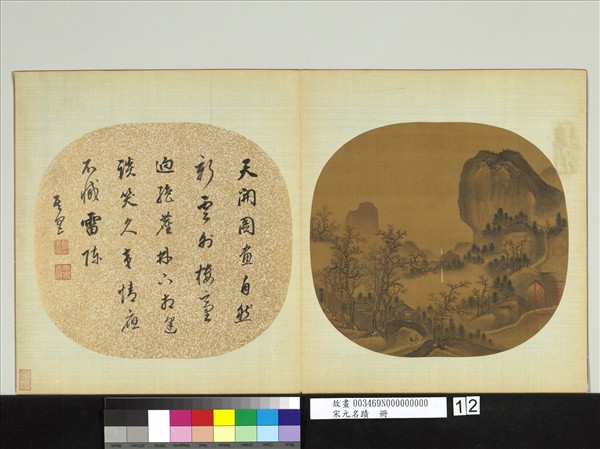 天開圖畫自然
新雲外樓臺
迥絕塵林下相逢
談笑久高情應
不愧雷陳
故畫 003469N000000000
宋元名蹟 冊
12